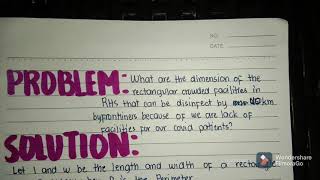 NO:
DATE:
PROBLEM: What are the dimension of the
rectangular crowded facilities in
RHS that can be disinfect by 40 km
byfrontliners because of we are lack of
facilities for our covid patients?
SOLUTION:
Let l and w be the length and width of a
Perimeter
Wondershare
FilmoraGo